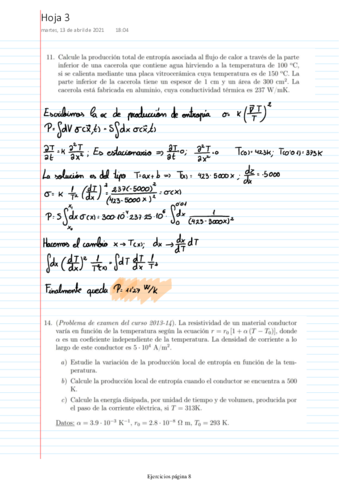 Hoja 3
martes, 13 de abril de 2021 18:04
11. Calcule la producción total de entropía asociada al flujo de calor a través de la parte
inferior de una cacerola que contiene agua hirviendo a la temperatura de 100 °C,
si se calienta mediante una placa vitrocerámica cuya temperatura es de 150 °C. La
parte inferior de la cacerola tiene un espesor de 1 cm y un área de 300 cm². La
cacerola está fabricada en aluminio, cuya conductividad térmica es 237 W/mK.
Escribimos la ec de producción de entropía σ = k(∇T/T)²
P = ∫dV σ(x⃗,t) = S∫dx σ(x,t)
∂T/∂t = k ∂²T/∂x² ; Es estacionario ⇒ ∂T/∂t = 0; ∂²T/∂x² = 0 T(0) = 423K; T(0'01) = 373K
La solución es del tipo T = ax + b ⇒ T(x) = 423 - 5000x ; = -5000
σ = k 1/T² (dT/dx)² = 237(-5000)²/(423-5000x)² = σ(x)
P = S∫dx σ(x) = 300·10⁻⁴·237·25·10⁶·∫₀^0'01 dx 1/(423-5000x)²
Hacemos el cambio x → T(x); dx → dx/dT dT
∫dx (dT/dx)² 1/T²(x) = ∫dT dT/dx 1/T²
Finalmente queda P = 11'27 W/K
14. (Problema de examen del curso 2013-14). La resistividad de un material conductor
varía en función de la temperatura según la ecuación r = r₀ [1 + α (T − T₀)], donde
α es un coeficiente independiente de la temperatura. La densidad de corriente a lo
largo de este conductor es 5 · 10⁶ A/m².
a) Estudie la variación de la producción local de entropía en función de la tem-
peratura.
b) Calcule la producción local de entropía cuando el conductor se encuentra a 500
K.
c) Calcule la energía disipada, por unidad de tiempo y de volumen, producida por
el paso de la corriente eléctrica, si T = 313K.
Datos: α = 3.9 · 10⁻³ K⁻¹, r₀ = 2.8 · 10⁻⁸ Ω m, T₀ = 293 K.
Ejercicios página 8